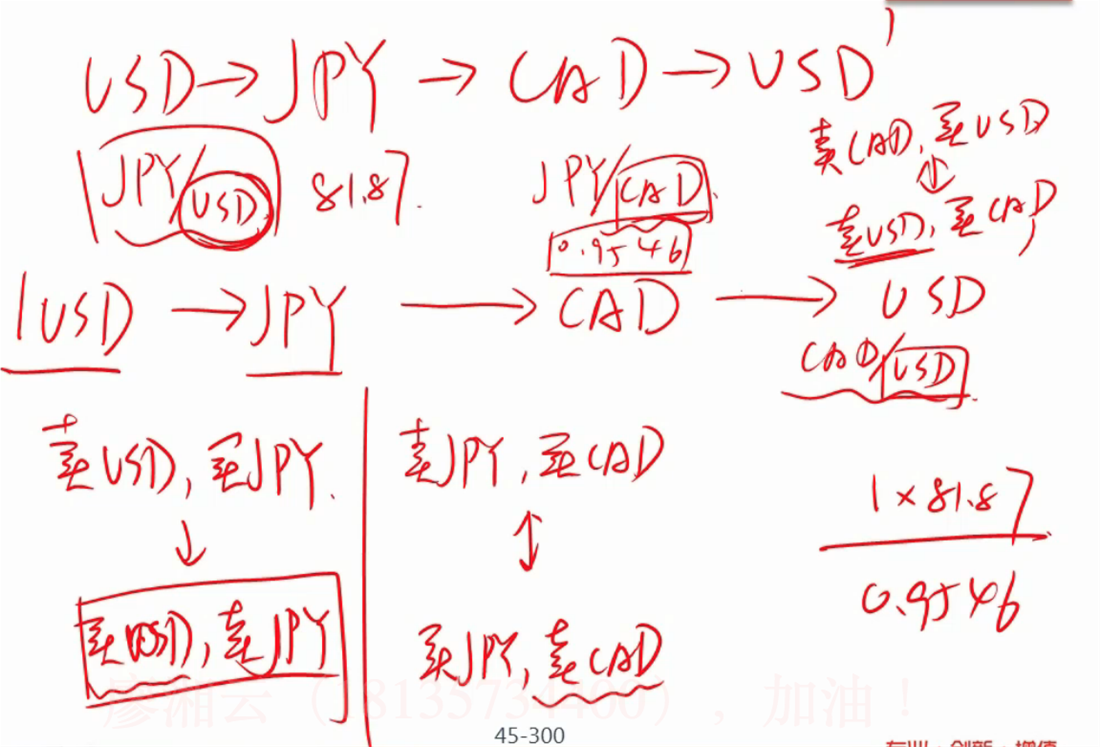 USD→JPY→CAD→USD'
JPY/USD 81.87.
JPY/CAD
0.9546
卖CAD, 买USD
卖USD, 买CAD
1USD → JPY → CAD → USD
CAD/USD
卖USD, 买JPY.
↓
买USD, 卖JPY
卖JPY, 买CAD
↕
买JPY, 卖CAD
1×81.87
0.9546
45-300